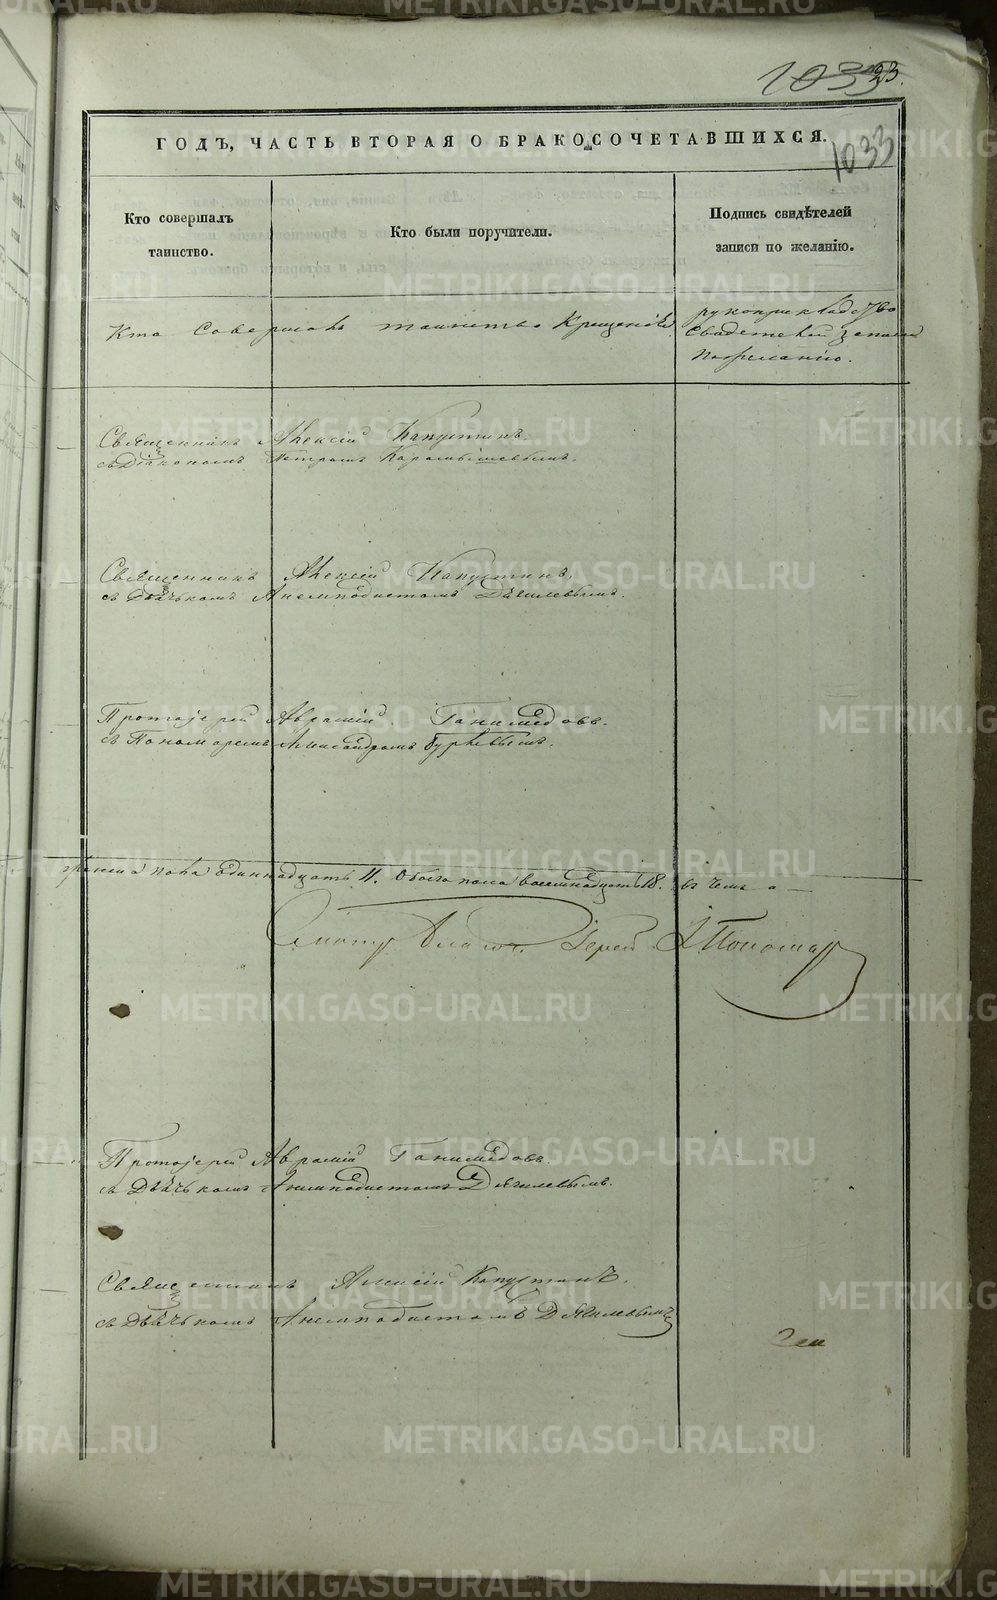 1033
23.
ГОДЪ, ЧАСТЬ ВТОРАЯ О БРАКОСОЧЕТАВШИХСЯ.
1033
Кто совершалъ
таинство.
Кто были поручители.
Подпись свидѣтелей
записи по желанію.
Кто Совершалъ таинство Крещенія
рукоприкладство
свидетелей записи
по желанію.
Священникъ Алексій Капустинъ.
съ Діакономъ Петромъ Карамышевымъ.
Священникъ Алексій Капустинъ,
съ Дьячькомъ Анемподистомъ Дягилевымъ.
Протоіерей Аврамій Ганимедовъ.
съ Пономаремъ Александромъ
женска пола одиннадцать 11. Обоего пола восемнадцать 18. въ чемъ
Протоіерей Аврамій Ганимедовъ.
съ Дьячькомъ Анемподистомъ Дягилевымъ.
Священникъ Алексій Капустинъ.
съ Дьячькомъ Анемподистомъ Дягилевымъ
METRIKI.GASO-URAL.RU